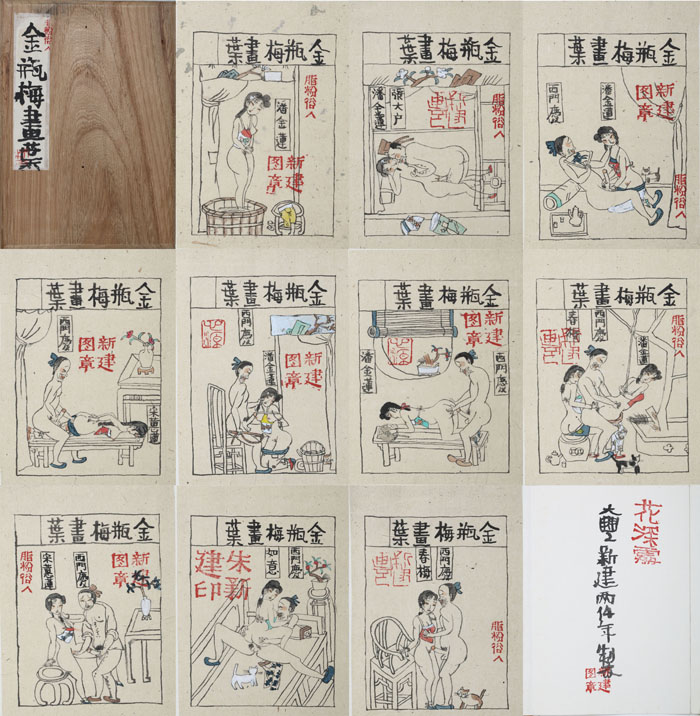 金瓶梅畫葉
金瓶梅畫葉
脂粉俗人
潘金蓮
新建图章
金瓶梅畫葉
脂粉俗人
張大户
潘金蓮
金瓶梅畫葉
潘金蓮
西門慶
脂粉俗人
金瓶梅畫葉
新建图章
西門慶
宋惠蓮
金瓶梅畫葉
西門慶
潘金蓮
新建图章
金瓶梅畫葉
新建图章
西門慶
潘金蓮
金瓶梅畫葉
脂粉俗人
潘金蓮
西門慶
春梅
金瓶梅畫葉
新建图章
西門慶
宋惠蓮
脂粉俗人
金瓶梅畫葉
西門慶
如意
朱新建印
金瓶梅畫葉
西門慶
春梅
脂粉俗人
花深處
新建
年制
新建图章